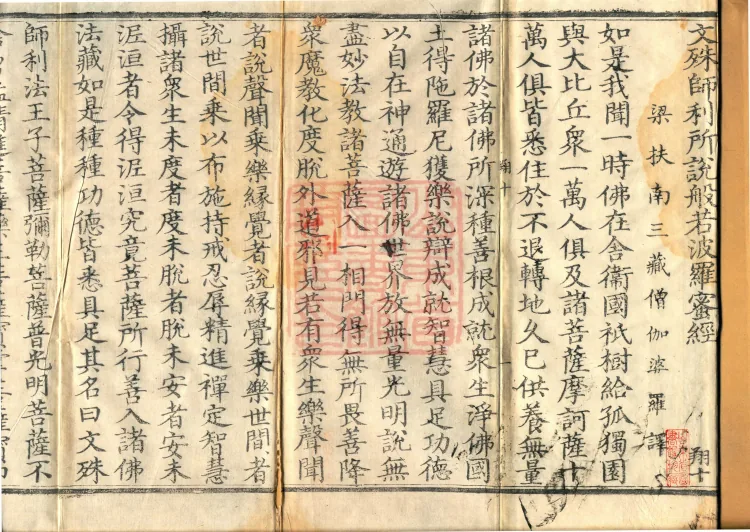 文殊師利所說般若波羅蜜經
翔十
梁扶南三藏僧伽婆羅譯
如是我聞一時佛在舍衛國祇樹給孤獨園
與大比丘衆一萬人俱及諸菩薩摩訶薩十
萬人俱皆悉住於不退轉地久已供養無量
諸佛於諸佛所深種善根成就衆生淨佛國
土得陁羅尼獲樂說辯成就智慧具足功德
以自在神通遊諸佛世界放無量光明說無
盡妙法教諸菩薩入一相門得無所畏善降
衆魔教化度脫外道邪見若有衆生樂聲聞
者說聲聞乗樂緣覺者說緣覺乗樂世間者
說世間乗以布施持戒忍辱精進禪定智慧
攝諸衆生未度者度未脫者脫未安者安未
涅洹者令得涅洹究竟菩薩所行善入諸佛
法藏如是種種功德皆悉具足其名曰文殊
師利法王子菩薩彌勒菩薩普光明菩薩不